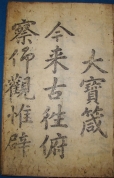 大寶箴
今来古徃俯
察仰觀惟辟